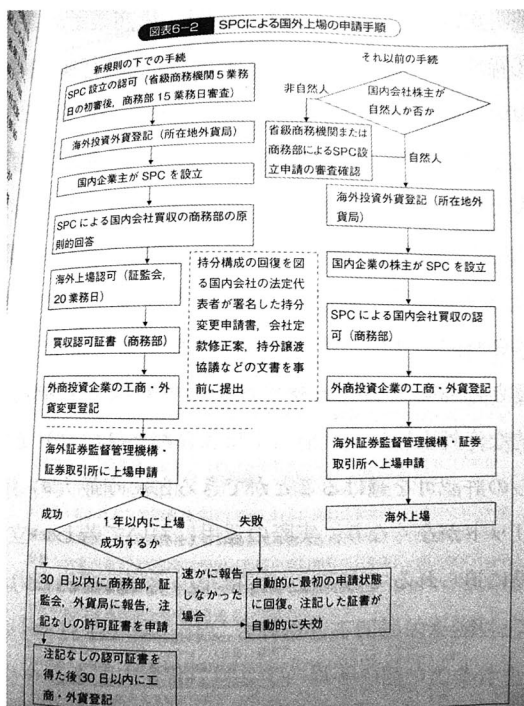 図表6-2 SPCによる国外上場の申請手順
新規則の下での手続
SPC設立の認可（省級商務機関5業務
日の初審後，商務部15業務日審査）
海外投資外貨登記（所在地外貨局）
国内企業主がSPCを設立
SPCによる国内会社買収の商務部の原
則的回答
海外上場認可（証監会，
20業務日）
買収認可証書（商務部）
外商投資企業の工商・外
貨変更登記
海外証券監督管理機構・
証券取引所に上場申請
持分構成の回復を図
る国内会社の法定代
表者が署名した持分
変更申請書，会社定
款修正案，持分譲渡
協議などの文書を事
前に提出
成功
1年以内に上場
成功するか
失敗
30日以内に商務部，証
監会，外貨局に報告，注
記なしの許可証書を申請
速かに報告
しなかった
場合
自動的に最初の申請状態
に回復。注記した証書が
自動的に失効
注記なしの認可証書を
得た後30日以内に工
商・外貨登記
それ以前の手続
国内会社株主が
自然人か否か
非自然人
省級商務機関または
商務部によるSPC設
立申請の審査確認
自然人
海外投資外貨登記（所在地外
貨局）
国内企業の株主がSPCを設立
SPCによる国内会社買収の認
可（商務部）
外商投資企業の工商・外貨登記
海外証券監督管理機構・証券
取引所へ上場申請
海外上場